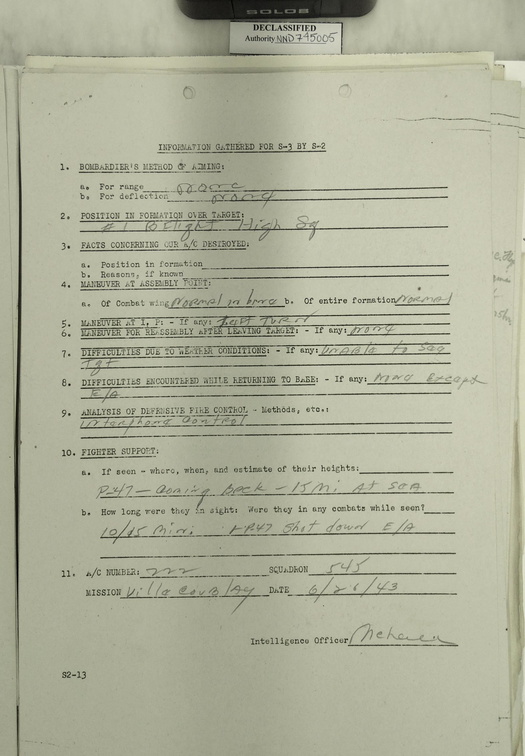 SOLOS
DECLASSIFIED
Authority NND745005
INFORMATION GATHERED FOR S-3 BY S-2
1. BOMBARDIER'S METHOD OF AIMING:
a. For range none
b. For deflection none
2. POSITION IN FORMATION OVER TARGET:
#1 B Flight High Sq
3. FACTS CONCERNING OUR A/C DESTROYED:
a. Position in formation
b. Reasons, if known
4. MANEUVER AT ASSEMBLY POINT:
a. Of Combat wing Normal in b. Of entire formation Normal
5. MANEUVER AT I. P: - If any: Left Turn
6. MANEUVER FOR REASSEMBLY AFTER LEAVING TARGET: - If any: none
7. DIFFICULTIES DUE TO WEATHER CONDITIONS: - If any: unable to see
Tgt
8. DIFFICULTIES ENCOUNTERED WHILE RETURNING TO BASE: - If any: none Except
E/A
9. ANALYSIS OF DEFENSIVE FIRE CONTROL - Methods, etc.:
interphone control
10. FIGHTER SUPPORT:
a. If seen - where, when, and estimate of their heights:
P-47 - coming back - 15 Mi At sea
b. How long were they in sight: Were they in any combats while seen?
10/15 Min. P47 Shot down E/A
11. A/C NUMBER: 222 SQUADRON 545
MISSION Villa Coublay DATE 6/26/43
Intelligence Officer
S2-13